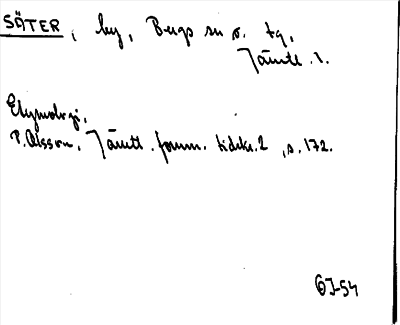 SÄTER, by, Bergs sn o. tg,
Jämtl. l.
Etymologi,
P. Olsson, Jämtl. fornm. tidskr. 2, s. 172.
GJ-54